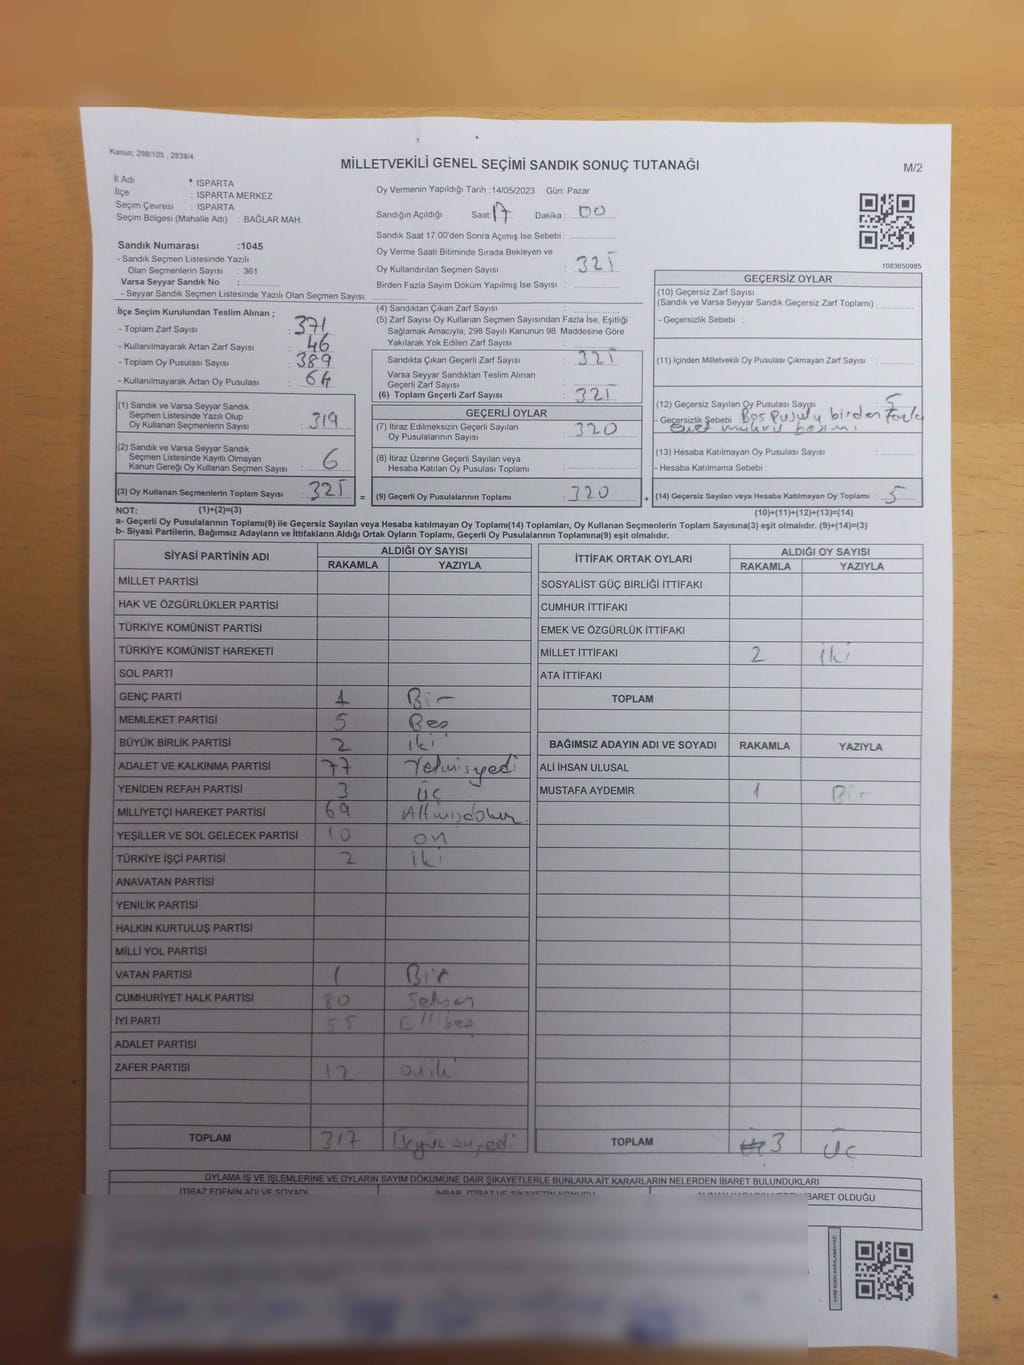 Kanun: 298/105 , 2839/4
MİLLETVEKİLİ GENEL SEÇİMİ SANDIK SONUÇ TUTANAĞI
M/2
İl Adı * ISPARTA
İlçe : ISPARTA MERKEZ
Seçim Çevresi : ISPARTA
Seçim Bölgesi (Mahalle Adı) : BAĞLAR MAH.
Oy Vermenin Yapıldığı Tarih :14/05/2023 Gün: Pazar
Sandığın Açıldığı Saat: 17 Dakika : 00
Sandık Saat 17:00'den Sonra Açımış İse Sebebi :
Oy Verme Saati Bitiminde Sırada Bekleyen ve
Oy Kullandırılan Seçmen Sayısı : 325
Birden Fazla Sayım Döküm Yapılmış İse Sayısı :
1083650985
Sandık Numarası :1045
- Sandık Seçmen Listesinde Yazılı
Olan Seçmenlerin Sayısı : 361
Varsa Seyyar Sandık No :
- Seyyar Sandık Seçmen Listesinde Yazılı Olan Seçmen Sayısı:
İlçe Seçim Kurulundan Teslim Alınan ;
- Toplam Zarf Sayısı : 371
- Kullanılmayarak Artan Zarf Sayısı : 46
- Toplam Oy Pusulası Sayısı : 389
- Kullanılmayarak Artan Oy Pusulası : 64
(1) Sandık ve Varsa Seyyar Sandık
Seçmen Listesinde Yazılı Olup
Oy Kullanan Seçmenlerin Sayısı : 319
(2) Sandık ve Varsa Seyyar Sandık
Seçmen Listesinde Kayıtlı Olmayan
Kanun Gereği Oy Kullanan Seçmen Sayısı : 6
(3) Oy Kullanan Seçmenlerin Toplam Sayısı : 325
(4) Sandıktan Çıkan Zarf Sayısı :
(5) Zarf Sayısı Oy Kullanan Seçmen Sayısından Fazla İse, Eşitliği
Sağlamak Amacıyla; 298 Sayılı Kanunun 98. Maddesine Göre
Yakılarak Yok Edilen Zarf Sayısı :
Sandıkta Çıkan Geçerli Zarf Sayısı : 325
Varsa Seyyar Sandıktan Teslim Alınan
Geçerli Zarf Sayısı :
(6) Toplam Geçerli Zarf Sayısı : 325
GEÇERLİ OYLAR
(7) İtiraz Edilmeksizin Geçerli Sayılan
Oy Pusulalarının Sayısı : 320
(8) İtiraz Üzerine Geçerli Sayılan veya
Hesaba Katılan Oy Pusulası Toplamı :
= (9) Geçerli Oy Pusulalarının Toplamı : 320
GEÇERSİZ OYLAR
(10) Geçersiz Zarf Sayısı
(Sandık ve Varsa Seyyar Sandık Geçersiz Zarf Toplamı) :
- Geçersizlik Sebebi :
(11) İçinden Milletvekili Oy Pusulası Çıkmayan Zarf Sayısı :
(12) Geçersiz Sayılan Oy Pusulası Sayısı : 5
- Geçersizlik Sebebi : Boş pusula birden fazla
evet mührü basımı
(13) Hesaba Katılmayan Oy Pusulası Sayısı :
- Hesaba Katılmama Sebebi :
+ (14) Geçersiz Sayılan veya Hesaba Katılmayan Oy Toplamı : 5
NOT: (1)+(2)=(3)
(10)+(11)+(12)+(13)=(14)
a- Geçerli Oy Pusulalarının Toplamı(9) ile Geçersiz Sayılan veya Hesaba katılmayan Oy Toplamı(14) Toplamları, Oy Kullanan Seçmenlerin Toplam Sayısına(3) eşit olmalıdır. (9)+(14)=(3)
b- Siyasi Partilerin, Bağımsız Adayların ve İttifakların Aldığı Ortak Oyların Toplamı, Geçerli Oy Pusulalarının Toplamına(9) eşit olmalıdır.
SİYASİ PARTİNİN ADI ALDIĞI OY SAYISI
RAKAMLA YAZIYLA
MİLLET PARTİSİ
HAK VE ÖZGÜRLÜKLER PARTİSİ
TÜRKİYE KOMÜNİST PARTİSİ
TÜRKİYE KOMÜNİST HAREKETİ
SOL PARTİ
GENÇ PARTİ 1 Bir
MEMLEKET PARTİSİ 5 Beş
BÜYÜK BİRLİK PARTİSİ 2 iki
ADALET VE KALKINMA PARTİSİ 77 Yetmişyedi
YENİDEN REFAH PARTİSİ 3 üç
MİLLİYETÇİ HAREKET PARTİSİ 69 Altmışdokuz
YEŞİLLER VE SOL GELECEK PARTİSİ 10 on
TÜRKİYE İŞÇİ PARTİSİ 2 iki
ANAVATAN PARTİSİ
YENİLİK PARTİSİ
HALKIN KURTULUŞ PARTİSİ
MİLLİ YOL PARTİSİ
VATAN PARTİSİ 1 Bir
CUMHURİYET HALK PARTİSİ 80 Seksen
İYİ PARTİ 55 Ellibeş
ADALET PARTİSİ
ZAFER PARTİSİ 12 oniki
TOPLAM 317 Üçyüzonyedi
İTTİFAK ORTAK OYLARI ALDIĞI OY SAYISI
RAKAMLA YAZIYLA
SOSYALİST GÜÇ BİRLİĞİ İTTİFAKI
CUMHUR İTTİFAKI
EMEK VE ÖZGÜRLÜK İTTİFAKI
MİLLET İTTİFAKI 2 iki
ATA İTTİFAKI
TOPLAM
BAĞIMSIZ ADAYIN ADI VE SOYADI RAKAMLA YAZIYLA
ALİ İHSAN ULUSAL
MUSTAFA AYDEMİR 1 Bir
TOPLAM 3 üç
OYLAMA İŞ VE İŞLEMLERİNE VE OYLARIN SAYIM DÖKÜMÜNE DAİR ŞİKAYETLERLE BUNLARA AİT KARARLARIN NELERDEN İBARET BULUNDUKLARI
İTİRAZ EDENİN ADI VE SOYADI
İBARET OLDUĞU